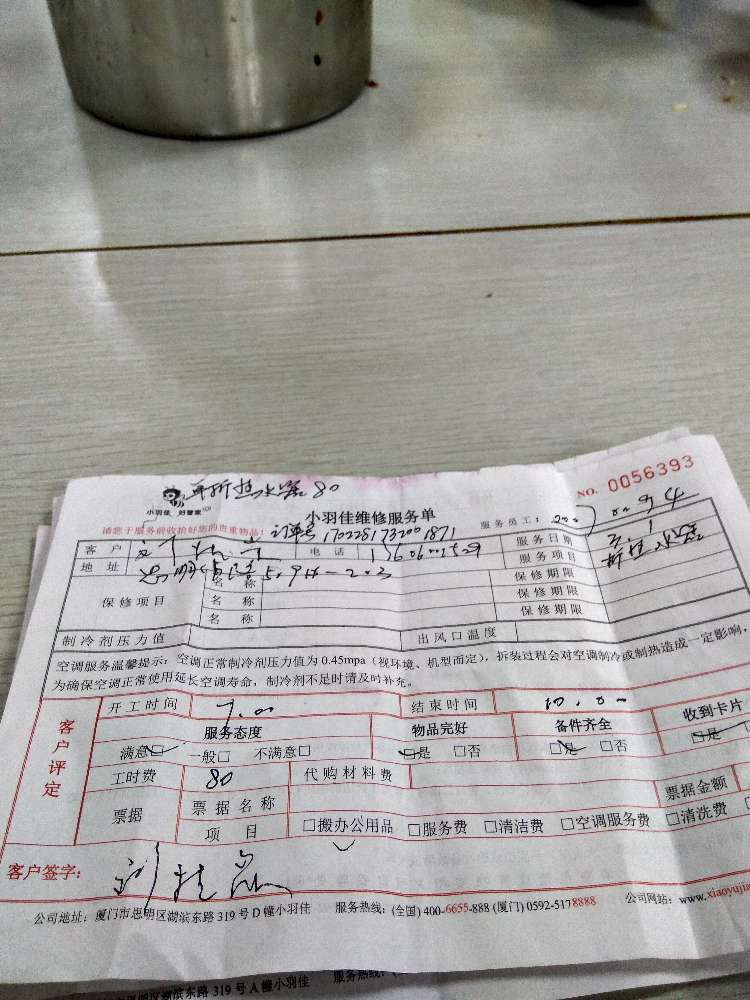 拆热水器 80
小羽佳 好管家
NO. 0056393
小羽佳维修服务单
请您于服务前收拾好您的贵重物品!
订单号 1702281732001871
服务员工:
客户
电话
服务日期 3.1
地址
服务项目 拆热水器
保修项目
名称
保修期限
名称
保修期限
名称
保修期限
制冷剂压力值
出风口温度
空调服务温馨提示:空调正常制冷剂压力值为0.45mpa(视环境、机型而定),拆装过程会对空调制冷或制热造成一定影响,
为确保空调正常使用延长空调寿命,制冷剂不足时请及时补充。
客户评定
开工时间 9.00
结束时间 10.00
服务态度
物品完好
备件齐全
收到卡片
满意□ 一般□ 不满意□
□是 □否
□是 □否
□是
工时费 80
代购材料费
票据
票据名称
票据金额
项目
□搬办公用品 □服务费 □清洁费 □空调服务费 □清洗费
客户签字:
公司地址:厦门市思明区湖滨东路319号D幢小羽佳 服务热线:(全国)400-6655-888 (厦门)0592-5178888 公司网站:www.xiaoyujia
湖滨东路319号A幢小羽佳 服务热线: